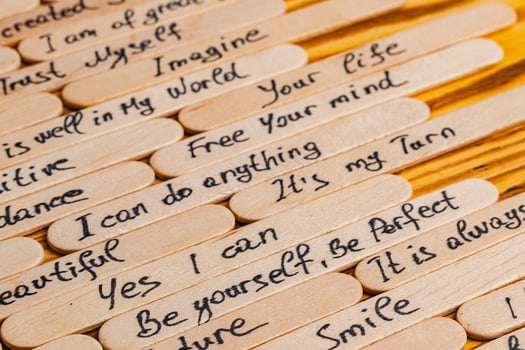 created S
I am of great
Trust Myself
Imagine
is well in My World
Your life
itive
Free Your mind
dance
I can do anything
It's my Turn
eautiful
Yes I can
Be yourself, Be Perfect
It is always
ture
Smile
I